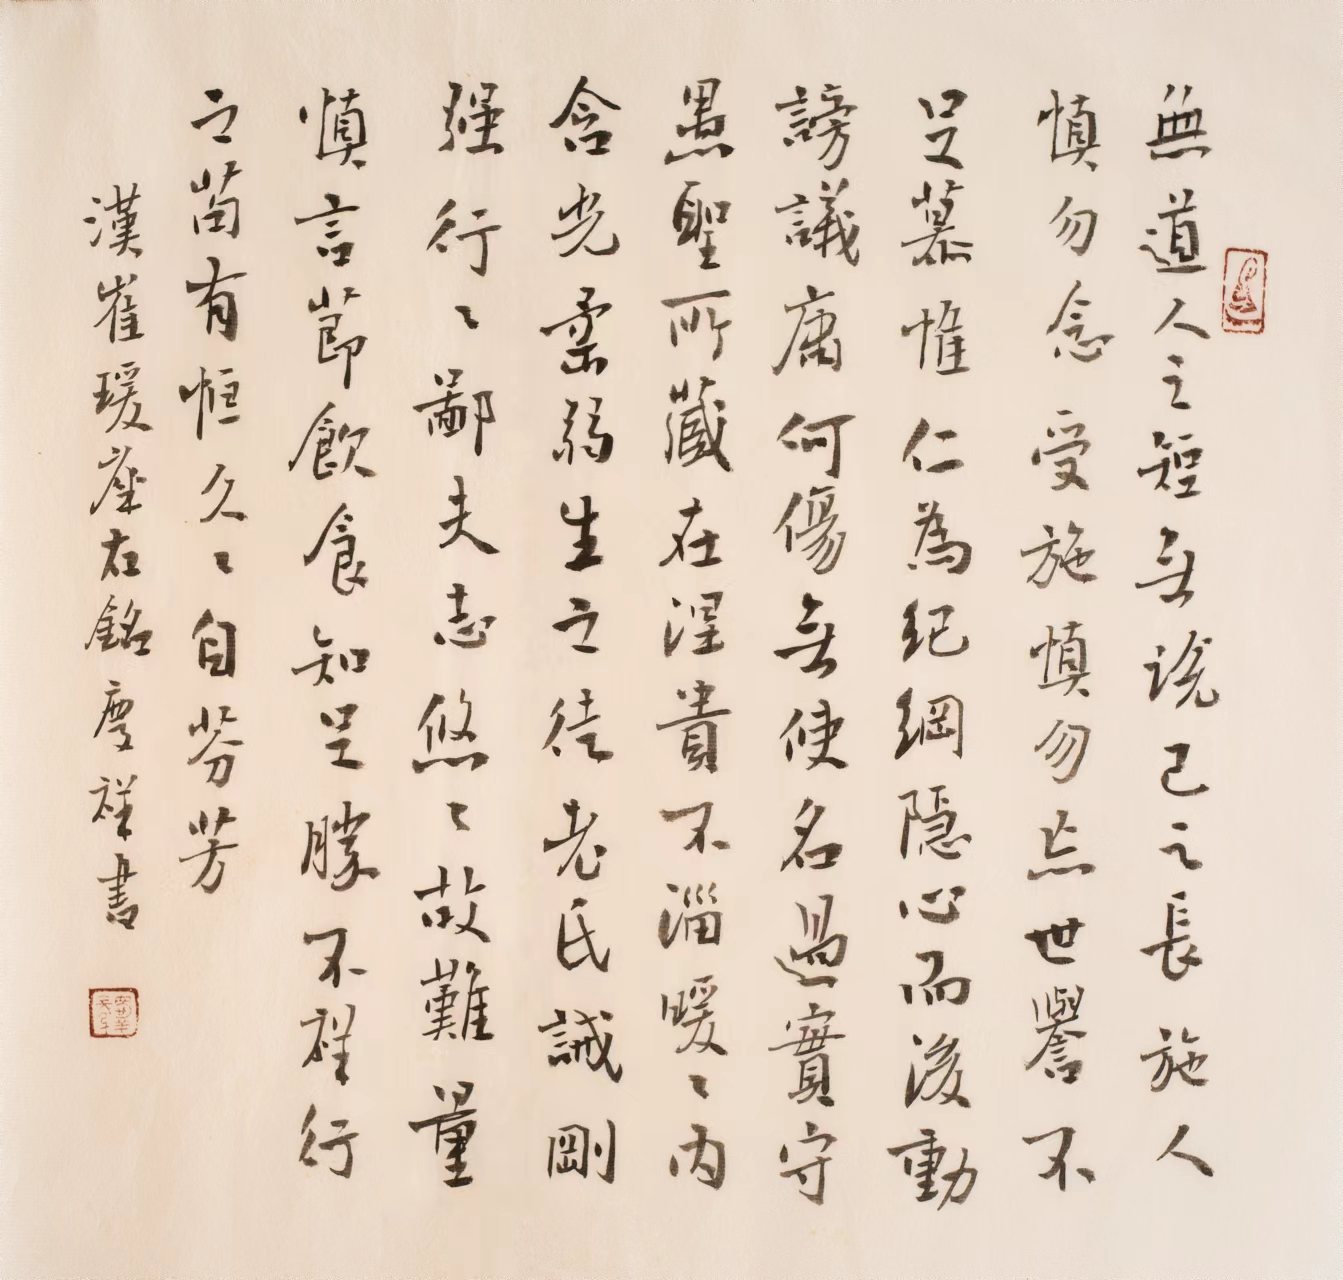 無道人之短無説己之長施人
慎勿念受施慎勿忘世譽不
足慕惟仁為紀綱隱心而後動
謗議庸何傷無使名過實守
愚聖所藏在涅貴不淄暖〻内
含光柔弱生之徒老氏誡剛
强行〻鄙夫志悠〻故難量
慎言節飲食知足勝不祥行
之苟有恒久〻自芬芳
漢崔瑗座右銘慶祥書